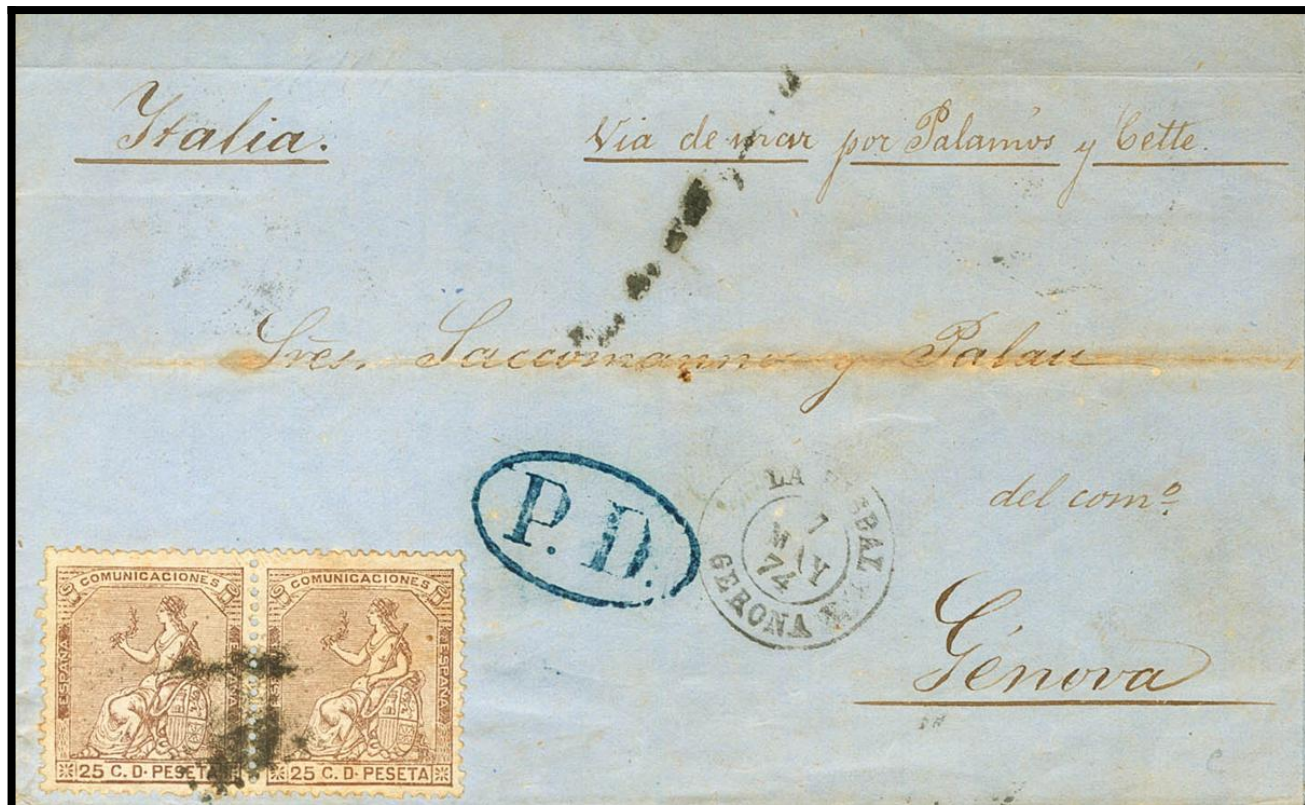 Italia.
Via de mar por Palamós y Cette.
Sres. Saccomanno y Palau
del comº
Génova
P. D.
LA BISBAL
7
MAY
74
GERONA
COMUNICACIONES
ESPAÑA
25 C. D. PESETA
COMUNICACIONES
ESPAÑA
25 C. D. PESETA